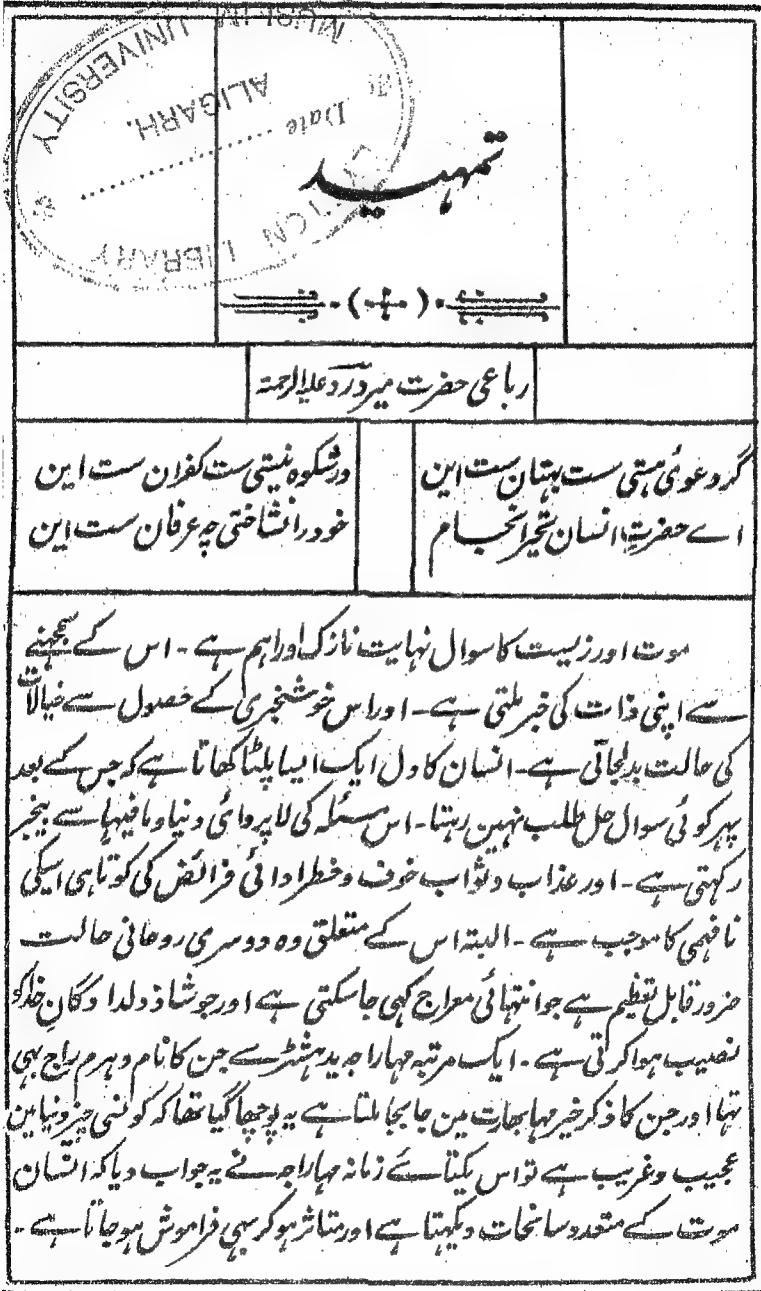 MUSLIM UNIVERSITY
ALIGARH.
Date
LYTTON LIBRARY
تمہید
رباعی حضرت میر درد علیہ الرحمۃ
گر دعویٔ ہستی ست بہتان ست این
ور شکوہ نیستی ست کفران ست این
اے حضرتِ انسان تحیر انجام
خود را نشاختی چہ عرفان ست این
موت اور زیست کا سوال نہایت نازک اور اہم ہے ۔ اس کے سمجھنے
سے اپنی ذات کی خبر ملتی ہے ۔ اور اس خوشخبری کے حصول سے خیالات
کی حالت بدلجاتی ہے ۔ انسان کا دل ایک ایسا پلٹا کھاتا ہے کہ جس کے بعد
پہر کوئی سوال حل طلب نہین رہتا ۔ اس مسئلہ کی لاپروائی دنیا و مافیہا سے بیخبر
رکہتی ہے ۔ اور عذاب و ثواب خوف و خطر ادائی فرائض کی کوتاہی اسیکی
نافہمی کا موجب ہے ۔ البتہ اس کے متعلق وہ دوسری روحانی حالت
ضرور قابل تعظیم ہے جو انتہائی معراج کہی جاسکتی ہے اور جو شاذ دلدادگانِ خدا کو
نصیب ہوا کرتی ہے ۔ ایک مرتبہ مہاراجہ یدہشٹر سے جن کا نام دہرم راج بہی
تہا اور جن کا ذکر خیر مہابھارت مین جابجا ملتا ہے یہ پوچھا گیا تھا کہ کونسی چیز دنیا مین
عجیب و غریب ہے تو اس یکتائے زمانہ مہاراجہ نے یہ جواب دیا کہ انسان
موت کے متعدد سانحات دیکہتا ہے اور متاثر ہو کر بہی فراموش ہو جاتا ہے ۔